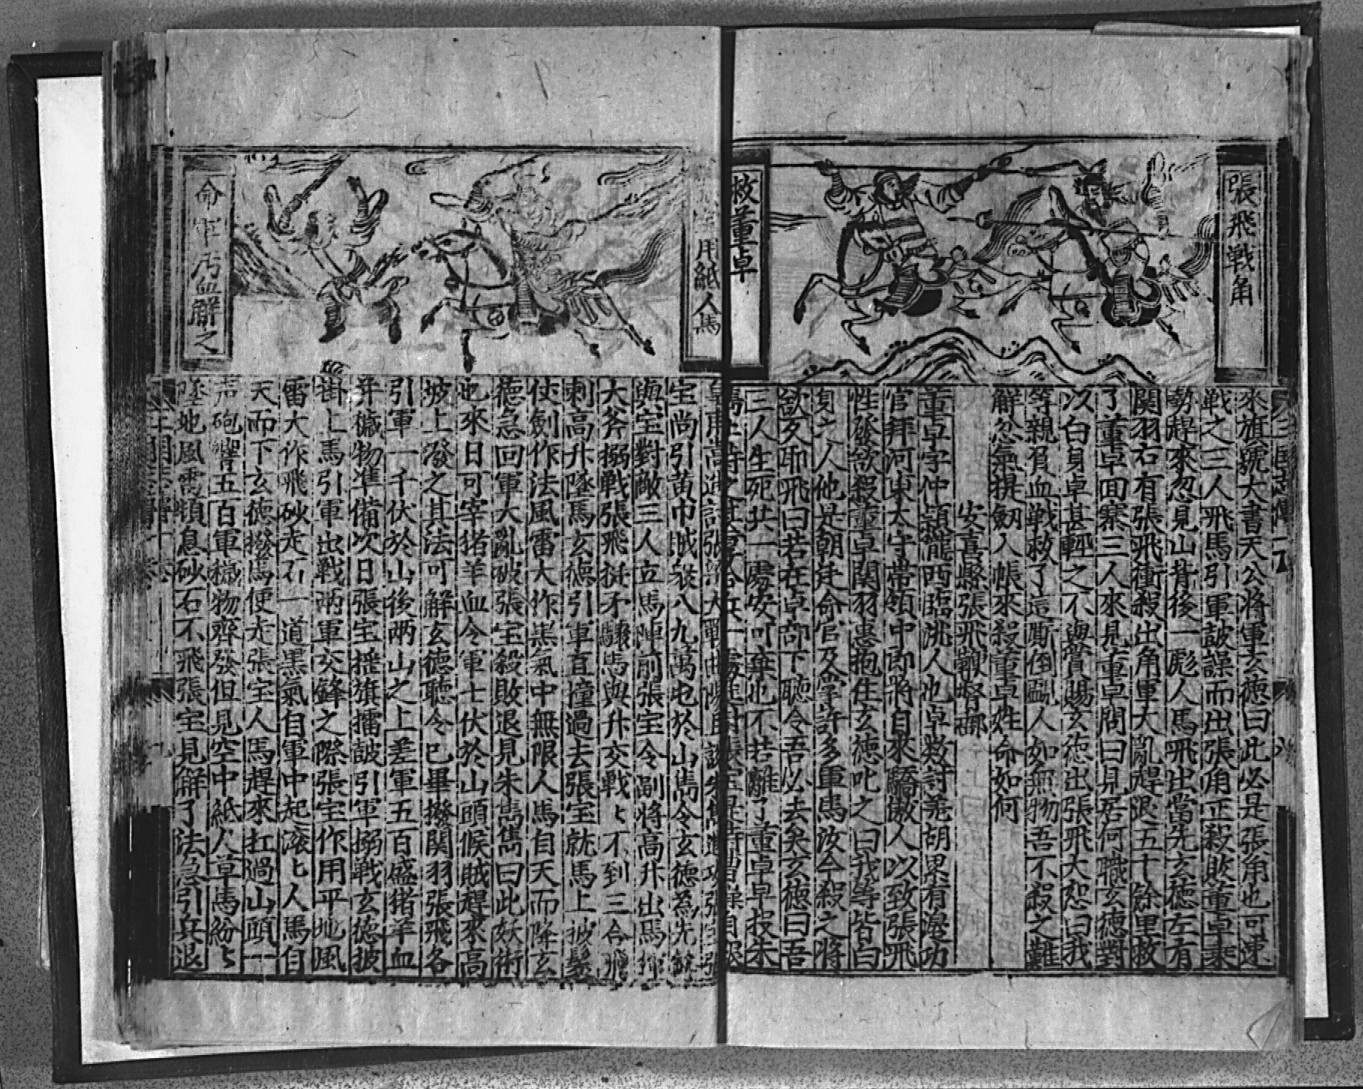 張飛戰角
救董卓
來旗號大書天公將軍玄德曰此必是張角也可速
戰之三人飛馬引軍鼓譟而出張角正殺敗董卓乘
勢趕來忽見山背後一彪人馬飛出當先玄德左有
関羽右有張飛衝殺出角軍大亂趕退五十餘里救
了董卓囬寨三人來見董卓問曰見居何職玄德對
以白身卓甚輕之不與賞賜玄德出張飛大怒曰我
等親冐血戰救了這厮倒覷人如無物吾不殺之難
解忿氣提劒入帳來殺董卓姓命如何
安喜縣張飛鞭督郵
董卓字仲頴隴西臨洮人也卓数討羗胡累有邉功
官拜河東太守帶領中郎將自來驕傲人以致張飛
性發欲殺董卓関羽急抱住玄德叱之曰我等皆白
身之人他是朝廷命官及掌許多軍馬汝今殺之將
欲反耶飛曰若在卓部下聽令吾必去矣玄德曰吾
三人生死共一處安可棄也不若離了董卓早投朱
用紙人馬
命軍汚血觧之
宝尚引黄巾賊衆八九萬屯於山雋令玄德為先
與宝對敵三人立馬陣前張宝令副將高升出馬揮
大斧搦戰張飛挺矛驟馬與升交戰〻不到三合飛
刺高升墜馬玄德引軍直撞過去張宝就馬上披髮
使劍作法風雷大作黒氣中無限人馬自天而降玄
德急回軍大亂被張宝殺敗退見朱雋雋曰此妖術
也來日可宰猪羊血令軍士伏於山頭候賊趕來高
坡上潑之其法可解玄德聽令已畢撥関羽張飛各
引軍一千伏於山後兩山之上差軍五百盛猪羊血
并穢物準備次日張宝揺旗擂鼓引軍搦戰玄德披
掛上馬引軍出戰兩軍交鋒之際張宝作用平地風
雷大作飛砂走石一道黒氣自軍中起滚〻人馬自
天而下玄德撥馬便走張宝人馬趕來扛過山頭一
声砲响五百軍穢物齊發但見空中紙人草馬紛〻
墜地風雷頓息砂石不飛張宝見觧了法急引兵退